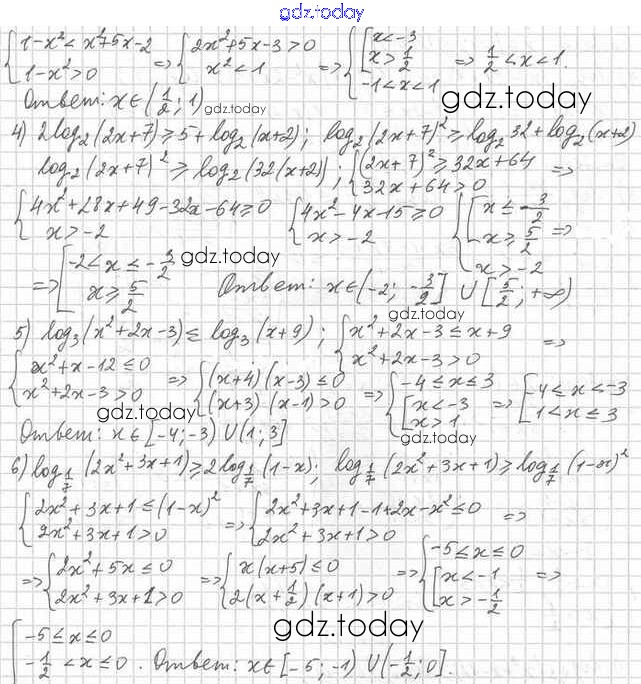 gdz.today
{1-x²<x²+5x-2 {2x²+5x-3>0 {[x<-3
{1-x²>0 => {x²<1 => {[x>1/2 => 1/2<x<1.
-1<x<1
Ответ: x∈(1/2; 1) gdz.today gdz.today
4) 2log₂(2x+7)≥5+log₂(x+2); log₂(2x+7)²≥log₂32+log₂(x+2)
log₂(2x+7)²≥log₂(32(x+2)); {(2x+7)²≥32x+64
{32x+64>0 =>
{4x²+28x+49-32x-64≥0 {4x²-4x-15≥0 {[x≤-3/2
{x>-2 {x>-2 {[x≥5/2 =>
gdz.today {x>-2
=> [-2<x≤-3/2
[x≥5/2 Ответ: x∈(-2; -3/2] ∪ [5/2; +∞)
gdz.today
5) log₃(x²+2x-3)≤log₃(x+9); {x²+2x-3≤x+9
{x²+2x-3>0 =>
{x²+x-12≤0 => {(x+4)(x-3)≤0 => {-4≤x≤3 => [-4≤x<-3
{x²+2x-3>0 {(x+3)(x-1)>0 {[x<-3 [1<x≤3
gdz.today [x>1
Ответ: x∈[-4;-3) ∪ (1; 3] gdz.today
6) log₁/₇(2x²+3x+1)≥2log₁/₇(1-x); log₁/₇(2x²+3x+1)≥log₁/₇(1-x)²
{2x²+3x+1≤(1-x)² => {2x²+3x+1-1+2x-x²≤0 =>
{2x²+3x+1>0 {2x²+3x+1>0
=> {2x²+5x≤0 => {x(x+5)≤0 => {-5≤x≤0
{2x²+3x+1>0 {2(x+1/2)(x+1)>0 {[x<-1 =>
[x>-1/2
gdz.today
{-5≤x≤0
{-1/2<x≤0. Ответ: x∈[-5; -1) ∪ (-1/2; 0].